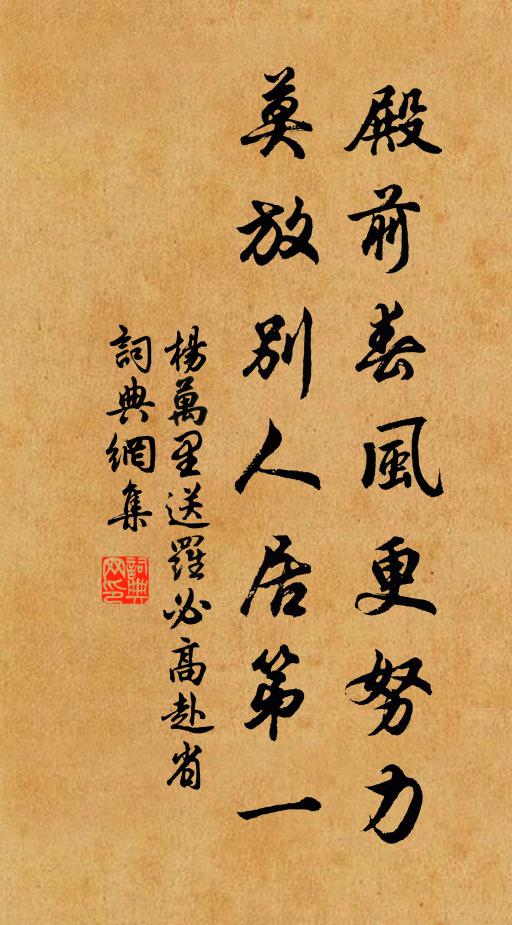 殿前春風更努力
莫放別人居第一
楊萬里送羅必高赴省
詞典網集
詞典网印